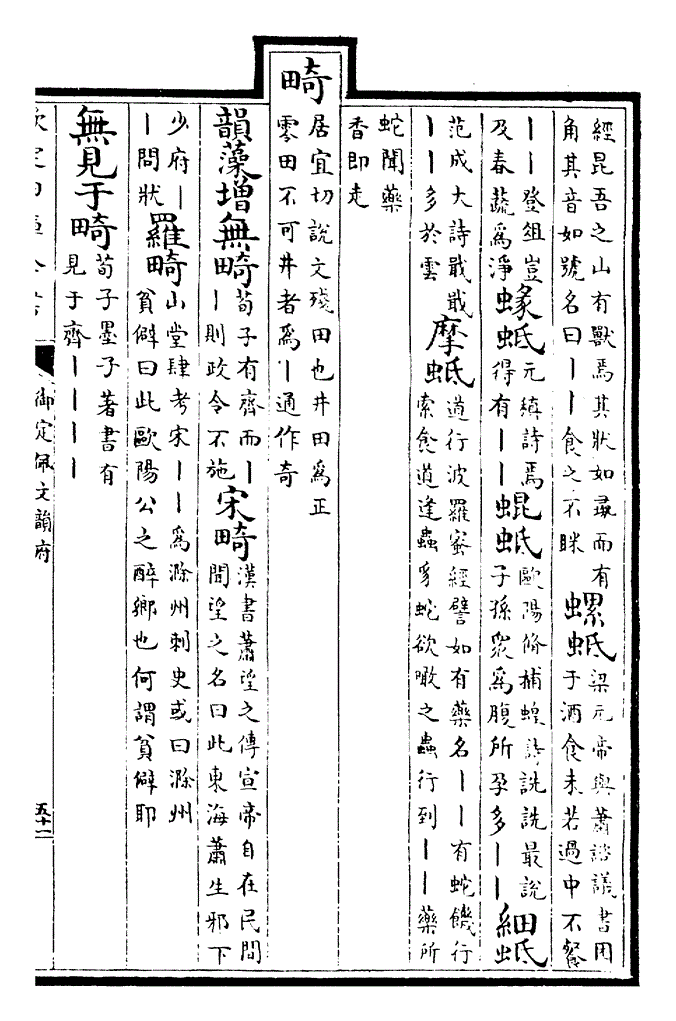 經昆吾之山有獸焉其狀如彘而有
角其音如號名曰丨丨食之不眯
螺蚳
梁元帝與蕭諮議書困
于酒食未若過中不餐
丨丨登俎豈
及春蔬為淨
蝝蚳
元稹詩焉
得有丨丨
蜫蚳
歐陽脩捕蝗詩詵詵最說
子孫眾為腹所孕多丨丨
細蚳
范成大詩戢戢
丨丨多於雲
摩蚳
道行波羅蜜經譬如有藥名丨丨有蛇饑行
索食道逢蟲豸蛇欲噉之蟲行到丨丨藥所
蛇聞藥
香即走
畸
居宜切說文殘田也井田為正
零田不可井者為丨通作奇
韻藻增無畸
荀子有齊而丨
丨則政令不施
宋畸
漢書蕭望之傳宣帝自在民間
聞望之名曰此東海蕭生邪下
少府丨
丨問狀
羅畸
山堂肆考宋丨丨為滁州刺史或曰滁州
貧僻曰此歐陽公之醉鄉也何謂貧僻耶
無見于畸
荀子墨子著書有
見于齊丨丨丨丨
欽定四庫全書
御定佩文韻府
五十二